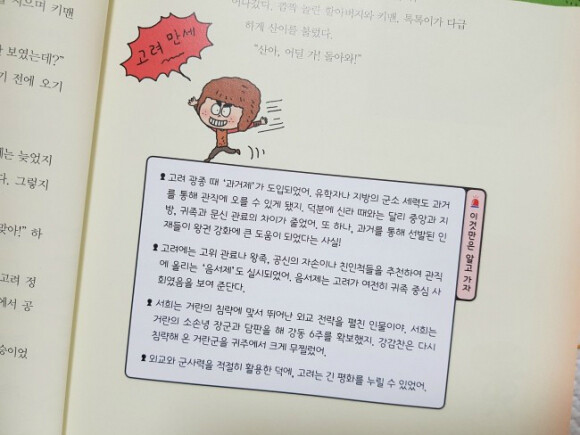 지으며 키맨
보였는데?"
기 전에 오기
늦었지
다. 그렇지
맞아!" 하
고려 정
에서 공
승이었
할아버지와 키맨, 똑똑이가 다급
하게 산이를 불렀다.
"산아, 어딜 가! 돌아와!"
고려 만세
이것만은 알고 가자
고려 광종 때 '과거제'가 도입되었어. 유학자나 지방의 군소 세력도 과거
를 통해 관직에 오를 수 있게 됐지. 덕분에 신라 때와는 달리 중앙과 지
방, 귀족과 문신 관료의 차이가 줄었어. 또 하나, 과거를 통해 선발된 인
재들이 왕권 강화에 큰 도움이 되었다는 사실!
고려에는 고위 관료나 왕족, 공신의 자손이나 친인척들을 추천하여 관직
에 올리는 '음서제'도 실시되었어. 음서제는 고려가 여전히 귀족 중심 사
회였음을 보여 준단다.
서희는 거란의 침략에 맞서 뛰어난 외교 전략을 펼친 인물이야. 서희는
거란의 소손녕 장군과 담판을 해 강동 6주를 확보했지. 강감찬은 다시
침략해 온 거란군을 귀주에서 크게 무찔렀어.
외교와 군사력을 적절히 활용한 덕에, 고려는 긴 평화를 누릴 수 있었어.